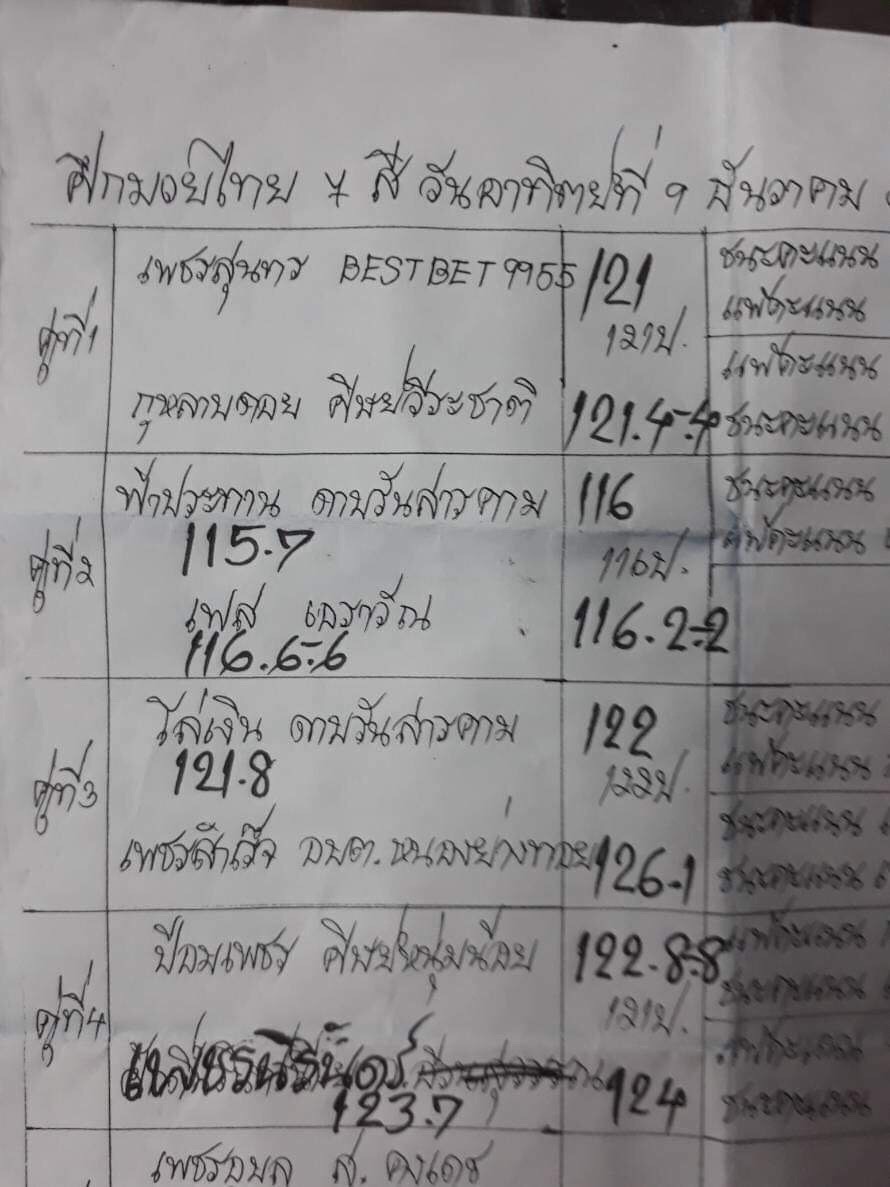 ศึกมวยไทย 7 สี วันอาทิตย์ที่ 9 ธันวาคม
คู่ที่1
เพชรสุนทร BESTBET9955 121
121ป.
กุหลาบดอย ศิษย์วีระชาติ 121.4-.4
ชนะคะแนน
แพ้คะแนน
แพ้คะแนน
ชนะคะแนน
คู่ที่2
ฟ้าประทาน ดาบรันสารคาม 116
115.7
116ป.
เฟส เอราวัณ 116.2-.2
116.6-.6
ชนะคะแนน
แพ้คะแนน
คู่ที่3
ไล่เงิน ดาบรันสารคาม 122
121.8
122ป.
เพชรสำเร็จ อบต.หนองย่างทอย 126.1
ชนะคะแนน
แพ้คะแนน
ชนะคะแนน
ชนะคะแนน
คู่ที่4
ป้อมเพชร ศิษย์หนุ่มน้อย 122.8-.8
121ป.
124
123.7
แพ้คะแนน
ชนะคะแนน
แพ้คะแนน
ชนะคะแนน
ส. คงเดช